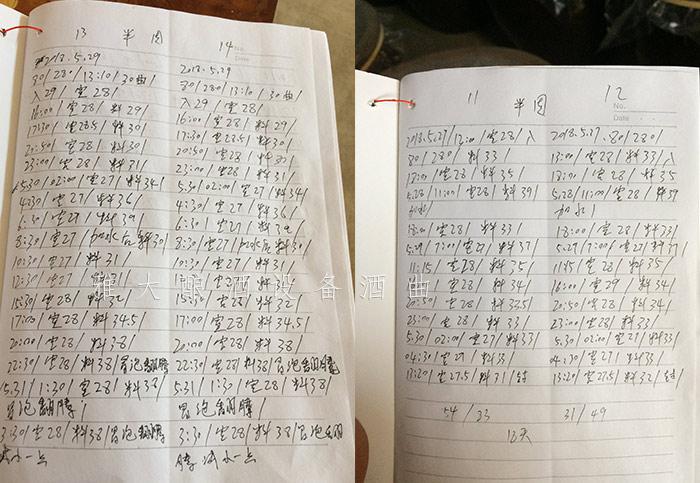 13 半肉 14
2018.5.29
30/28°/13:10/30曲/
入29/室28/
16:00/室28/料29/
17:30/室28.5/料30/
20:50/室28/料30/
23:00/室28/料31/
5.30/02:00/室27/料34/
4:30/室27/料36/
6:30/室27/料39/
8:30/室27/加水后料30/
10:30/室27/料31/
12:30/室27/料31/
15:30/室28/料32/
17:00/室28/料34.5/
20:00/室28/料38/
22:30/室28/料38/冒泡翻腾
5.31/1:30/室28/料38/
冒泡翻腾/
3:30/室28/料38/冒泡翻腾
减小一点
No.
Date
2018.5.29
30/28°/13:10/30曲/
入29/室28/
16:00/室28/料29/
17:30/室28.5/料30/
20:50/室28/料30/
23:00/室28/料31/
5.30/02:00/室27/料34/
4:30/室27/料36/
6:30/室27/料39/
8:30/室27/加水后料30/
10:30/室27/料31/
12:30/室27/料31/
15:30/室28/料32/
17:00/室28/料34.5/
20:00/室28/料38/
22:30/室28/料38/冒泡翻腾
5.31/1:30/室28/料38/
冒泡翻腾/
3:30/室28/料38/冒泡翻
腾减小一点
11 半肉 12
No.
Date
2018.5.27/12:00/室28/入
30/28°/料33/
18:00/室28/料35/
5.28/11:00/室28/料39/
加水/
18:00/室28/料33/
5.29/7:00/室27/料37/
11:15/室28/料35/
室28/料34/
20:50/室28/料33.5/
23:00/室28/料33/
5.30/02:00/室27/料33/
04:30/室27/料33/
13:20/室27.5/料31/封
2018.5.27.30/28°/
13:00/室28/料33/入
18:00/室28/料35/
5.28/11:00/室28/料39
加水/
18:00/室28/料33/
5.29/7:00/室27/料37/
11:15/室28/料35/
16:00/室29/料34/
20:50/室28/料34/
23:00/室28/料33/
5.30/02:00/室27/料33/
04:30/室27/料33/
13:20/室27.5/料32/封
54/33 31/49
12天
雅大酿酒设备酒曲